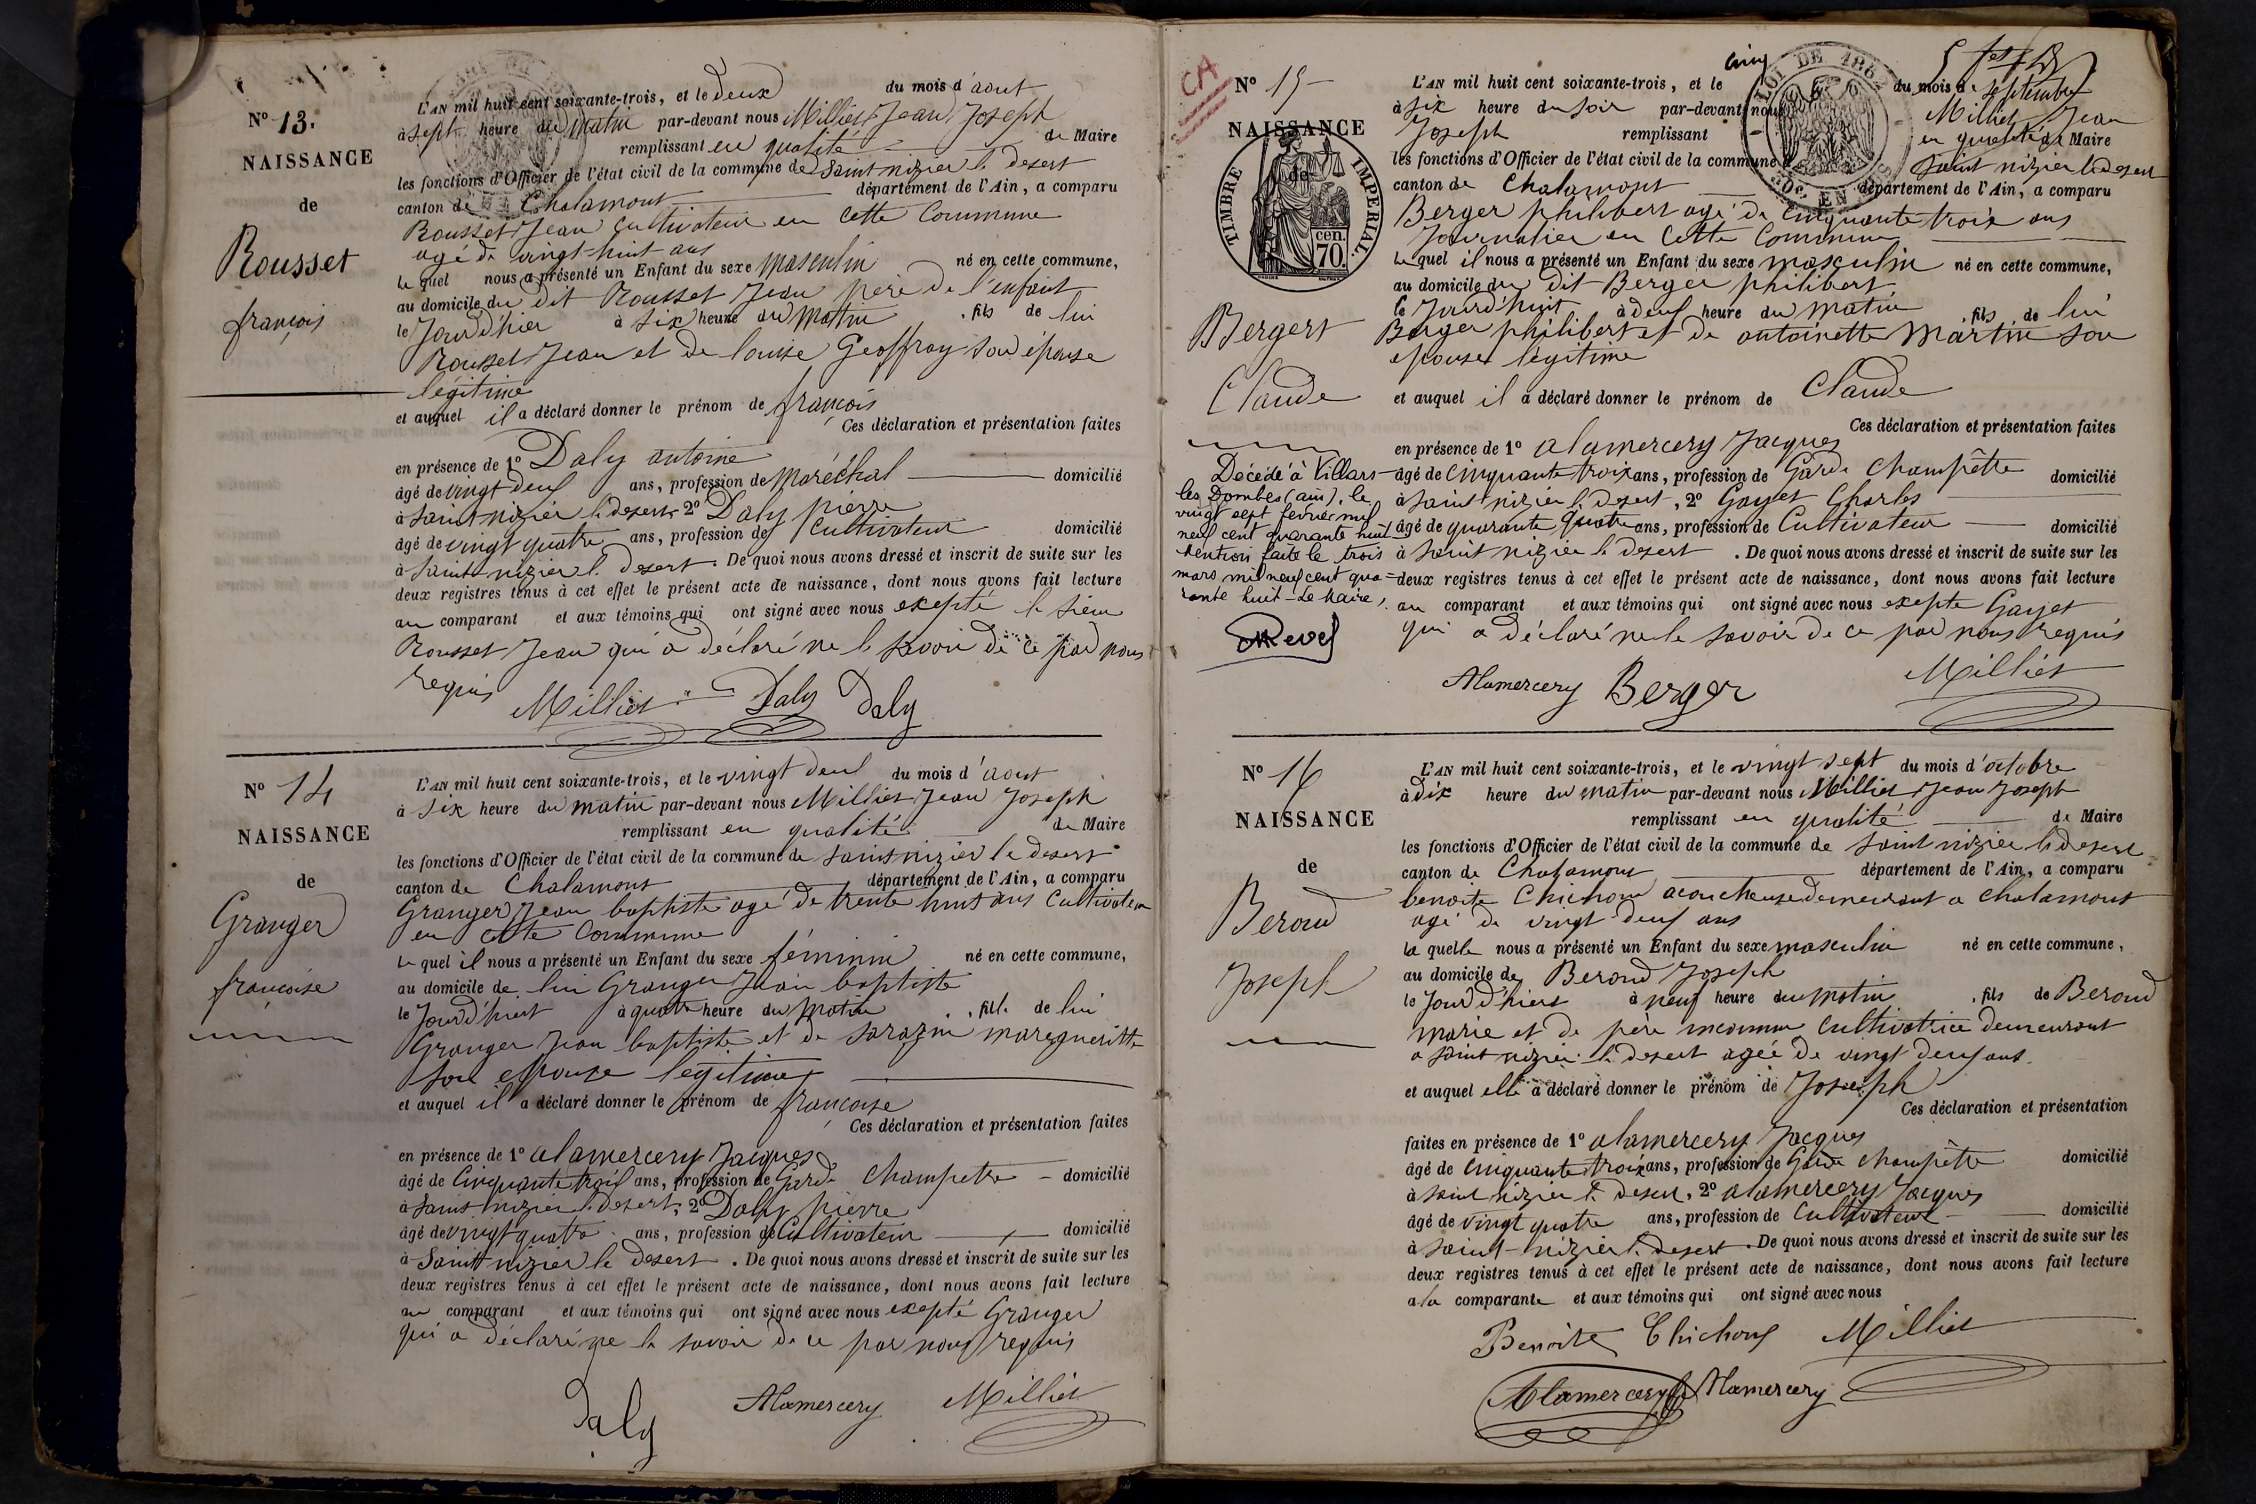 N° 13.
NAISSANCE
de
Rousset
françois
L'AN mil huit cent soixante-trois, et le deux du mois d'aout
à sept heure du matin par-devant nous Milliet Jean Joseph
remplissant en qualité de Maire
les fonctions d'Officier de l'état civil de la commune de Saint nizier le desert
canton de Chalamont département de l'Ain, a comparu
Rousset Jean cultivateur en cette Commune
agé de vingt-huit ans
le quel nous a présenté un Enfant du sexe masculin né en cette commune,
au domicile du dit Rousset Jean père de l'enfant
le Jour d'hier à six heure du matin , fils de lui
Rousset Jean et de louise Geoffray son épouse
légitime
et auquel il a déclaré donner le prénom de françois
Ces déclaration et présentation faites
en présence de 1° Daly antoine
âgé de vingt neuf ans, profession de maréchal domicilié
à Saint nizier le desert, 2° Daly pierre
âgé de vingt quatre ans, profession de Cultivateur domicilié
à Saint nizier le desert . De quoi nous avons dressé et inscrit de suite sur les
deux registres tenus à cet effet le présent acte de naissance, dont nous avons fait lecture
au comparant et aux témoins qui ont signé avec nous exepté le sieur
Rousset Jean qui a déclaré ne le savoir de ce par nous
requis Milliet Daly Daly
N° 14
NAISSANCE
de
Granger
françoise
L'AN mil huit cent soixante-trois, et le vingt deux du mois d'aout
à six heure du matin par-devant nous Milliet Jean Joseph
remplissant en qualité de Maire
les fonctions d'Officier de l'état civil de la commune de Saint nizier le desert
canton de Chalamont département de l'Ain, a comparu
Granger Jean baptiste agé de trente huit ans Cultivateur
en cette Commune
le quel il nous a présenté un Enfant du sexe féminin né en cette commune,
au domicile de lui Granger Jean baptiste
le Jour d'huit à quatre heure du matin , fille de lui
Granger Jean baptiste et de sarazin maregueritte
son epouse légitime
et auquel il a déclaré donner le prénom de françoise
Ces déclaration et présentation faites
en présence de 1° alamercery Jacques
âgé de Cinquante trois ans, profession de Garde Champetre domicilié
à Saint nizier le desert, 2° Daly pierre
âgé de vingt quatre ans, profession de Cultivateur domicilié
à Saint nizier le desert . De quoi nous avons dressé et inscrit de suite sur les
deux registres tenus à cet effet le présent acte de naissance, dont nous avons fait lecture
au comparant et aux témoins qui ont signé avec nous exepté Granger
qui a déclaré ne le savoir de ce par nous requis
Daly Alamercery Milliet
CA
N° 15
NAISSANCE
de
TIMBRE IMPERIAL
cen.
70.
Bergert
Claude
Décédé à Villars
les Dombes (ain), le
vingt sept février mil
neuf cent quarante huit
Mention faite le trois
mars mil neuf cent qua=
rante huit - Le Maire,
LOI DE 1862
L'AN mil huit cent soixante-trois, et le cinq du mois de septembre
à six heure du soir par-devant nous Milliet Jean
Joseph remplissant en qualité de Maire
les fonctions d'Officier de l'état civil de la commune de Saint nizier le desert
canton de Chalamont département de l'Ain, a comparu
Berger philibert agé de cinquante trois ans
Journalier en Cette Commune
le quel il nous a présenté un Enfant du sexe masculin né en cette commune,
au domicile du dit Berger philibert
le Jourd'huit à deux heure du matin , fils de lui
Berger philibert et de antoinette Martin son
epouse légitime
et auquel il a déclaré donner le prénom de Claude
Ces déclaration et présentation faites
en présence de 1° alamercery Jacques
âgé de cinquante trois ans, profession de Garde Champêtre domicilié
à Saint nizier le desert, 2° Gayet Charles
âgé de quarante quatre ans, profession de Cultivateur domicilié
à Saint nizier le desert . De quoi nous avons dressé et inscrit de suite sur les
deux registres tenus à cet effet le présent acte de naissance, dont nous avons fait lecture
au comparant et aux témoins qui ont signé avec nous exepte Gayet
qui a déclaré ne le savoir de ce par nous requis
Alamercery Berger Milliet
N° 16
NAISSANCE
de
Beroud
Joseph
L'AN mil huit cent soixante-trois, et le vingt sept du mois d'octobre
à dix heure du matin par-devant nous Milliet Jean Joseph
remplissant en qualité de Maire
les fonctions d'Officier de l'état civil de la commune de Saint nizier le desert
canton de Chalamont département de l'Ain, a comparu
benoite Chichoux acoucheuse demeurant a Chalamont
agé de vingt deux ans
la quelle nous a présenté un Enfant du sexe masculin né en cette commune,
au domicile de Beroud Joseph
le Jour d'hiers à neuf heure du matin , fils de Beroud
marie et de père inconnu cultivatrice demeurant
a saint nizier le desert agée de vingt deux ans.
et auquel elle a déclaré donner le prénom de Joseph
Ces déclaration et présentation
faites en présence de 1° alamercery Jacques
âgé de cinquante trois ans, profession de Garde champêtre domicilié
à saint nizier le desert, 2° alamercery Jacques
âgé de vingt quatre ans, profession de Cultivateur domicilié
à saint-nizier le desert . De quoi nous avons dressé et inscrit de suite sur les
deux registres tenus à cet effet le présent acte de naissance, dont nous avons fait lecture
a la comparante et aux témoins qui ont signé avec nous
Benoite Chichoux Milliet
Alamercery Alamercery